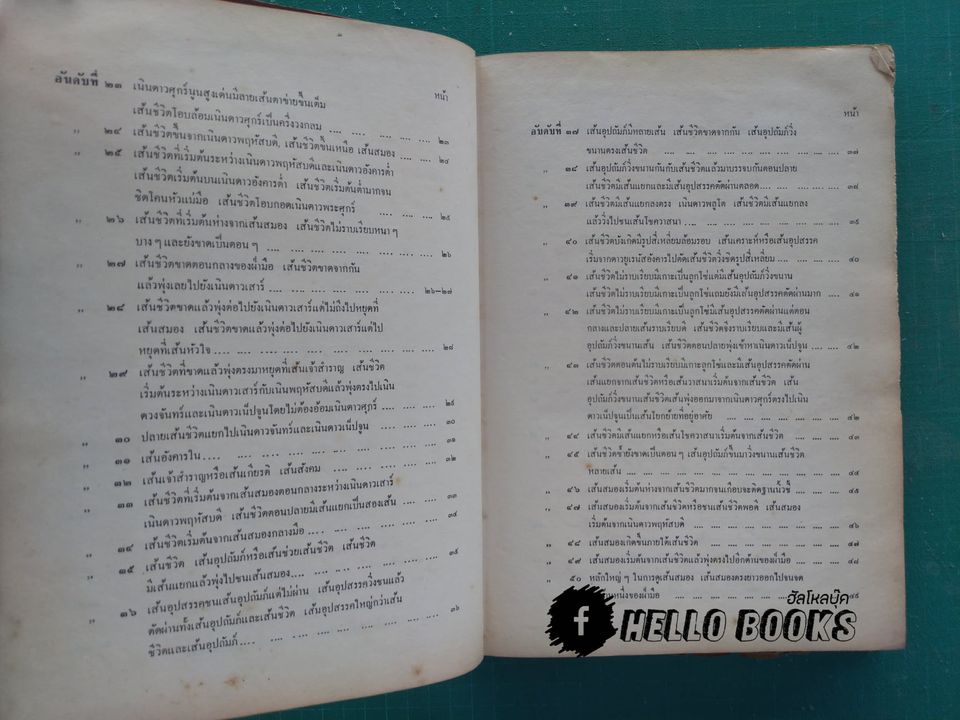 หน้า
อันดับที่ ๒๓ เนินดาวศุกร์นูนสูงเด่นมีลายเส้นตาข่ายขึ้นเต็ม
เส้นชีวิตโอบล้อมเนินดาวศุกร์เป็นครึ่งวงกลม .... .... .... .... ๒๓
,, ๒๔ เส้นชีวิตขึ้นจากเนินดาวพฤหัสบดี, เส้นชีวิตขึ้นเหนือ เส้นสมอง .... ๒๔
,, ๒๕ เส้นชีวิตที่เริ่มต้นระหว่างเนินดาวพฤหัสบดีและเนินดาวอังคารต่ำ
เส้นชีวิตเริ่มต้นบนเนินดาวอังคารต่ำ เส้นชีวิตเริ่มต้นต่ำมากจน
ชิดโคนหัวแม่มือ เส้นชีวิตโอบกอดเนินดาวพระศุกร์ .... .... .... ๒๕
,, ๒๖ เส้นชีวิตที่เริ่มต้นห่างจากเส้นสมอง เส้นชีวิตไม่ราบเรียบหนา ๆ
บาง ๆ และยังขาดเป็นตอน ๆ .... .... .... .... .... .... ๒๖
,, ๒๗ เส้นชีวิตขาดตอนกลางของฝ่ามือ เส้นชีวิตขาดจากกัน
แล้วพุ่งเลยไปยังเนินดาวเสาร์ .... .... .... .... .... ๒๖–๒๗
,, ๒๘ เส้นชีวิตขาดแล้วพุ่งต่อไปยังเนินดาวเสาร์แต่ไม่ถึงไปหยุดที่
เส้นสมอง เส้นชีวิตขาดแล้วพุ่งต่อไปยังเนินดาวเสาร์แต่ไป
หยุดที่เส้นหัวใจ .... .... .... .... .... .... .... ๒๘
,, ๒๙ เส้นชีวิตที่ขาดแล้วพุ่งตรงมาหยุดที่เส้นเจ้าสำราญ เส้นชีวิต
เริ่มต้นระหว่างเนินดาวเสาร์กับเนินพฤหัสบดีแล้วพุ่งตรงไปเนิน
ดวงจันทร์และเนินดาวเน็ปจูนโดยไม่ต้องอ้อมเนินดาวศุกร์ .... .... .... ๒๙
,, ๓๐ ปลายเส้นชีวิตแยกไปเนินดาวจันทร์และเนินดาวเน็ปจูน .... .... .... ๓๐
,, ๓๑ เส้นอังคารใน .... .... .... .... .... .... .... ๓๑
,, ๓๒ เส้นเจ้าสำราญหรือเส้นเกียรติ เส้นสังคม .... .... .... .... ๓๒
,, ๓๓ เส้นชีวิตที่เริ่มต้นจากเส้นสมองตอนกลางระหว่างเนินดาวเสาร์
เนินดาวพฤหัสบดี เส้นชีวิตตอนปลายมีเส้นแยกเป็นสองเส้น .... .... ๓๓
,, ๓๔ เส้นชีวิตเริ่มต้นจากเส้นสมองกลางมือ .... .... .... .... ๓๔
,, ๓๕ เส้นชีวิต เส้นอุปถัมภ์หรือเส้นช่วยเส้นชีวิต เส้นชีวิต
มีเส้นแยกแล้วพุ่งไปชนเส้นสมอง .... .... .... .... .... ๓๕
,, ๓๖ เส้นอุปสรรคชนเส้นอุปถัมภ์แต่ไม่ผ่าน เส้นอุปสรรควิ่งชนแล้ว
ตัดผ่านทั้งเส้นอุปถัมภ์และเส้นชีวิต เส้นอุปสรรคใหญ่กว่าเส้น
ชีวิตและเส้นอุปถัมภ์ .... .... .... .... .... .... .... ๓๖
หน้า
อันดับที่ ๓๗ เส้นอุปถัมภ์มีหลายเส้น เส้นชีวิตขาดจากกัน เส้นอุปถัมภ์วิ่ง
ขนานตรงเส้นชีวิต .... .... .... .... .... .... .... ๓๗
,, ๓๘ เส้นอุปถัมภ์วิ่งขนานกันกับเส้นชีวิตแล้วมาบรรจบกันตอนปลาย
เส้นชีวิตมีเส้นแยกและมีเส้นอุปสรรคตัดผ่านตลอด .... .... .... .... ๓๘
,, ๓๙ เส้นชีวิตมีเส้นแยกลงตรง เนินดาวพลูโต เส้นชีวิตมีเส้นแยกลง
แล้ววิ่งไปชนเส้นโชควาสนา .... .... .... .... .... .... ๓๙
,, ๔๐ เส้นชีวิตบังเกิดมีรูปสี่เหลี่ยมล้อมรอบ เส้นเคราะห์หรือเส้นอุปสรรค
เริ่มจากดาวยูเรนัสอังคารไปตัดเส้นชีวิตวิ่งชิดรูปสี่เหลี่ยม .... .... ๔๐
,, ๔๑ เส้นชีวิตไม่ราบเรียบมีเกาะเป็นลูกโซ่แต่มีเส้นอุปถัมภ์วิ่งขนาน
เส้นชีวิตไม่ราบเรียบมีเกาะเป็นลูกโซ่แถมยังมีเส้นอุปสรรคตัดผ่านมาก .... ๔๑
,, ๔๒ เส้นชีวิตไม่ราบเรียบมีเกาะเป็นลูกโซ่มีเส้นอุปสรรคตัดผ่านแต่ตอน
กลางและปลายเส้นราบเรียบดี เส้นชีวิตจึงราบเรียบและมีเส้นผู้
อุปถัมภ์วิ่งขนานเส้น เส้นชีวิตตอนปลายพุ่งเข้าหาเนินดาวเน็ปจูน .... ๔๒
,, ๔๓ เส้นชีวิตตอนต้นไม่ราบเรียบมีเกาะลูกโซ่และมีเส้นอุปสรรคตัดผ่าน
เส้นแยกจากเส้นชีวิตหรือเส้นวาสนาเริ่มต้นจากเส้นชีวิต เส้น
อุปถัมภ์วิ่งขนานเส้นชีวิตเส้นพุ่งออกมาจากเนินดาวศุกร์ตรงไปเนิน
ดาวเน็ปจูนเป็นเส้นโยกย้ายที่อยู่อาศัย .... .... .... .... ๔๒
,, ๔๔ เส้นชีวิตมีเส้นแยกหรือเส้นโชควาสนาเริ่มต้นจากเส้นชีวิต .... .... .... ๔๓
,, ๔๕ เส้นชีวิตซ้ำยังขาดเป็นตอน ๆ เส้นอุปถัมภ์ขึ้นมาวิ่งขนานเส้นชีวิต
หลายเส้น .... .... .... .... .... .... .... ๔๔
,, ๔๖ เส้นสมองเริ่มต้นห่างจากเส้นชีวิตมากจนเกือบจะติดฐานนิ้วชี้ .... .... .... ๔๕
,, ๔๗ เส้นสมองเริ่มต้นจากเส้นชีวิตหรือชนเส้นชีวิตพอดี เส้นสมอง
เริ่มต้นจากเนินดาวพฤหัสบดี .... .... .... .... .... ๔๖
,, ๔๘ เส้นสมองเกิดขึ้นภายใต้เส้นชีวิต .... .... .... .... .... ๔๗
,, ๔๙ เส้นสมองเริ่มต้นจากเส้นชีวิตแล้วพุ่งตรงไปอีกด้านของฝ่ามือ .... .... .... ๔๘
,, ๕๐ หลักใหญ่ ๆ ในการดูเส้นสมอง เส้นสมองตรงยาวออกไปจนจด
หนึ่งของฝ่ามือ .... .... .... .... .... ๔๙
ฮัลโหลบุ๊ค
f HELLO BOOKS